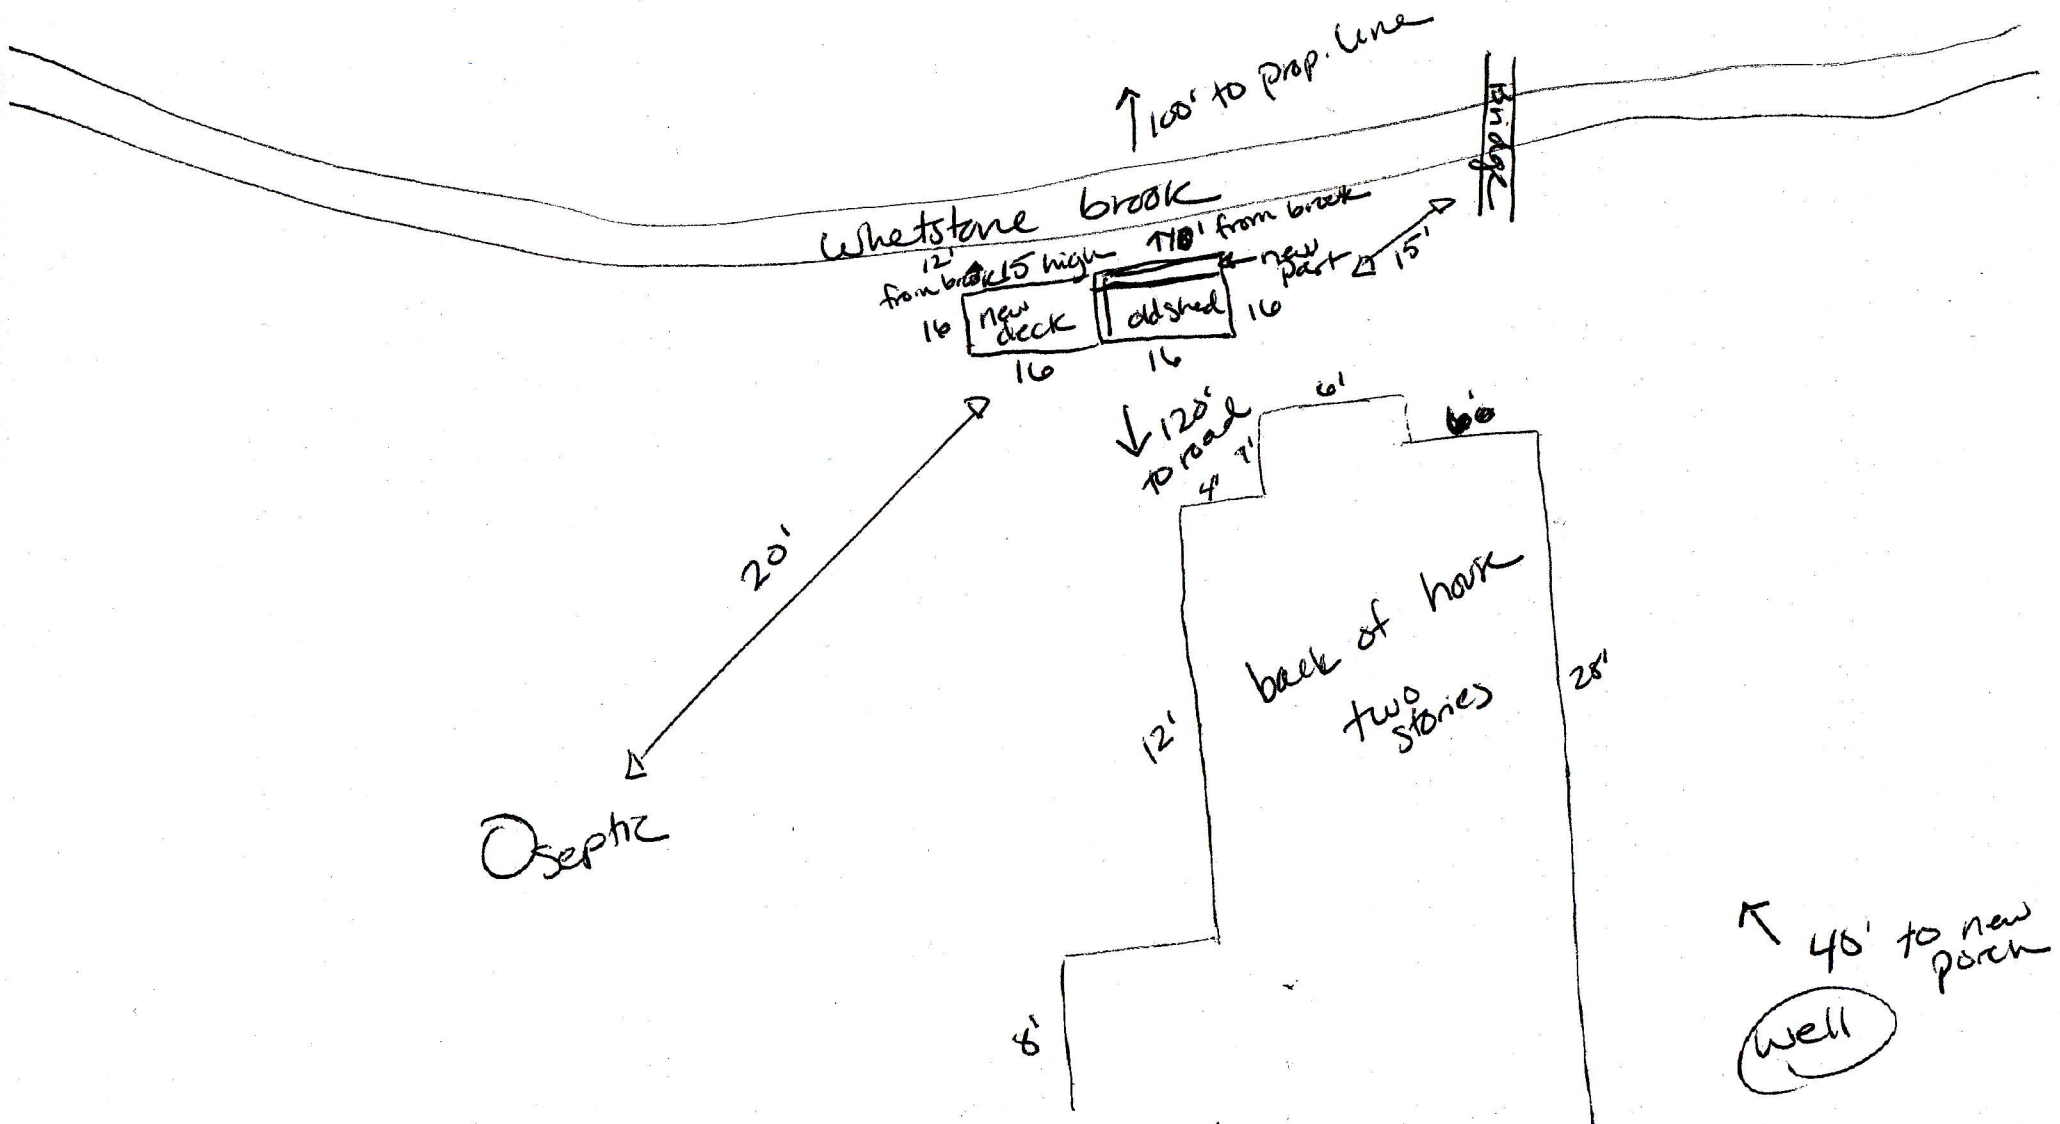 100' to prop. line
Bridge
Whetstone brook
12'
from brook
15 high
10' from brook
new
part
15'
16
new
deck
old shed
16
16
16
120'
to road
6'
7'
4'
20'
back of house
two
stories
12'
28'
septic
8'
40' to new
porch
well